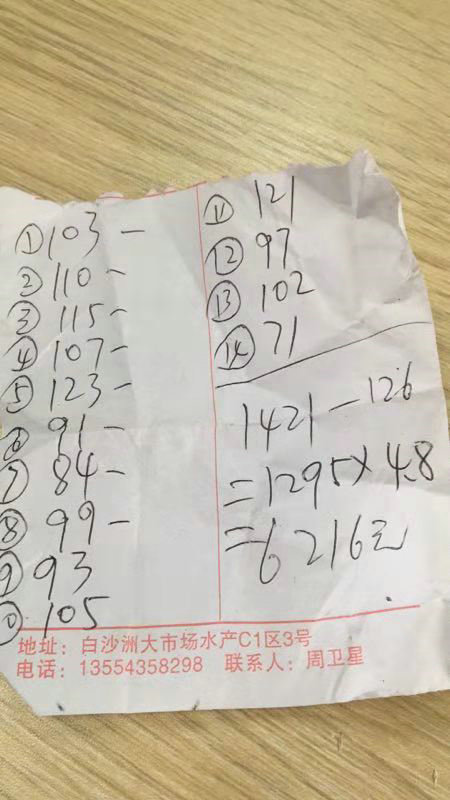 ① 103 -
② 110 -
③ 115 -
④ 107 -
⑤ 123 -
⑥ 91 -
⑦ 84 -
⑧ 99 -
⑨ 93
⑩ 105
⑪ 121
⑫ 97
⑬ 102
⑭ 71
1421 - 126
= 1295 × 4.8
= 6216元
地址：白沙洲大市场水产C1区3号
电话：13554358298 联系人：周卫星